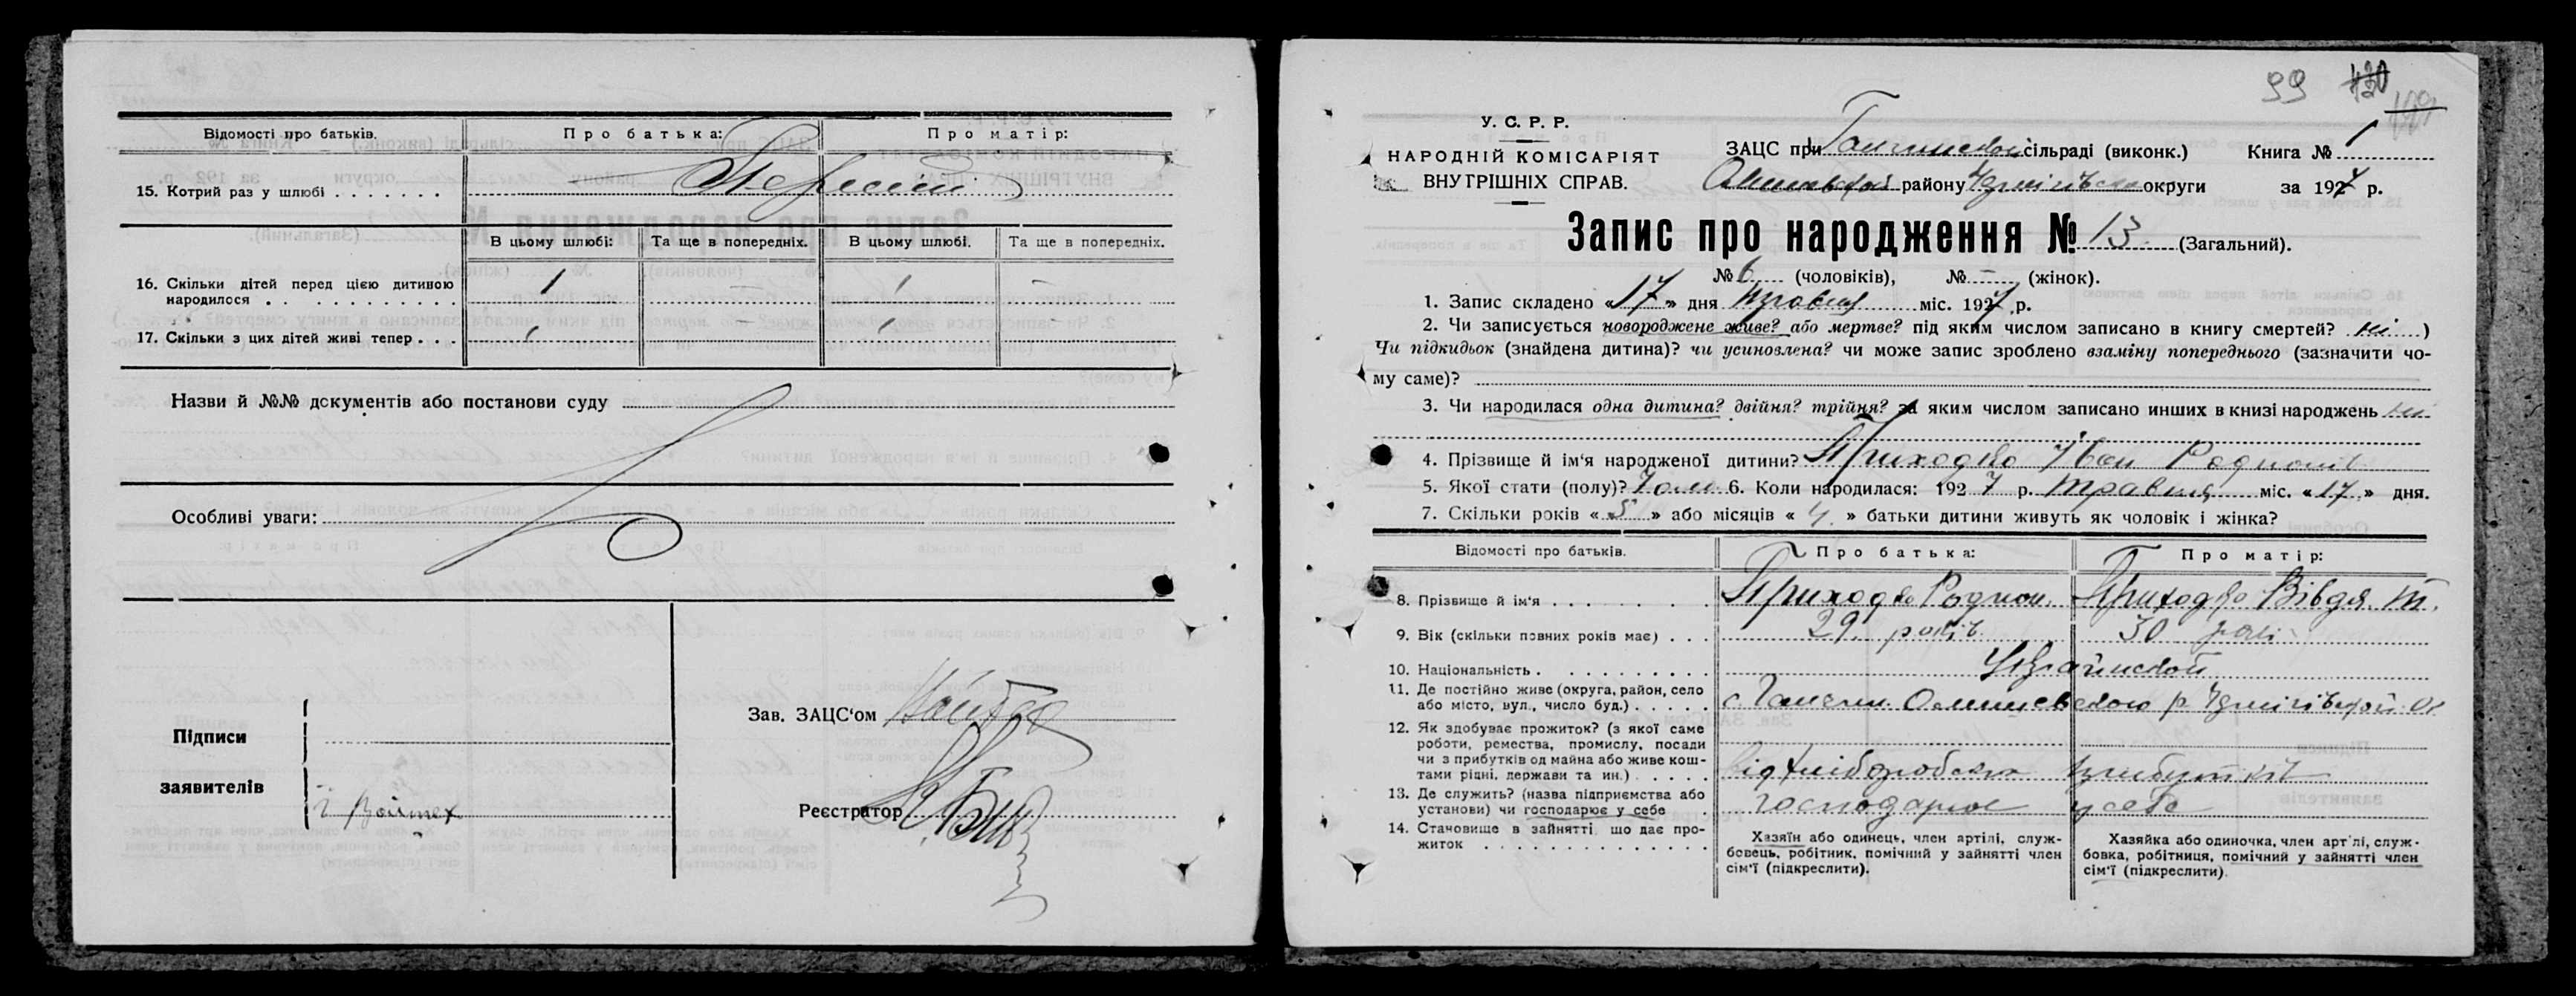 Відомості про батьків. Про батька: Про матір:
15. Котрий раз у шлюбі . . . . . . .
В цьому шлюбі: Та ще в попередніх. В цьому шлюбі. Та ще в попередніх.
16. Скільки дітей перед цією дитиною
народилося . . . . . . . . . . . 1 — 1 —
17. Скільки з цих дітей живі тепер . . . 1 — 1 —
Назви й №№ документів або постанови суду
Особливі уваги:
Підписи
заявителів
Зав. ЗАЦС'ом
Реєстратор
99 420
У. С. Р. Р.
НАРОДНІЙ КОМІСАРІЯТ
ВНУТРІШНІХ СПРАВ.
ЗАЦС при сільраді (виконк.) Книга № 1
району округи за 1927 р.
Запис про народження № 13 (Загальний).
№ 6 (чоловіків), № – (жінок).
1. Запис складено «17» дня травня міс. 1927 р.
2. Чи записується новороджене живе? або мертве? під яким числом записано в книгу смертей? ні )
Чи підкидьок (знайдена дитина)? чи усиновлена? чи може запис зроблено взаміну попереднього (зазначити чо-
му саме)?
3. Чи народилася одна дитина? двійня? трійня? за яким числом записано инших в книзі народжень ні
4. Прізвище й ім'я народженої дитини? Приходько Іван Родионів
5. Якої стати (полу)? Чол. 6. Коли народилася: 1927 р. травня міс. «17» дня.
7. Скільки років «5» або місяців «4» батьки дитини живуть як чоловік і жінка?
Відомості про батьків. Про батька: Про матір:
8. Прізвище й ім'я . . . . . . . Приходько Родион Приходько Вівдя Т.
9. Вік (скільки повних років має) . . . 29 років 30 років
10. Національність . . . . . . . . . . Української
11. Де постійно живе (округа, район, село
або місто, вул., число буд.) . . . . .
12. Як здобуває прожиток? (з якої саме
роботи, ремества, промислу, посади
чи з прибутків од майна або живе кош-
тами рідні, держави та ин.) . . . . . від хліборобських прибутків
13. Де служить? (назва підприємства або
установи) чи господарює у себе . господарює у себе
14. Становище в зайнятті що дає про-
житок . . . . . . . . . . . . . .
Хазяїн або одинець, член артілі, служ-
бовець, робітник, помічний у зайнятті член
сім'ї (підкреслити).
Хазяйка або одиночка, член арт'лі, служ-
бовка, робітниця, помічний у зайнятті член
сім'ї (підкреслити).